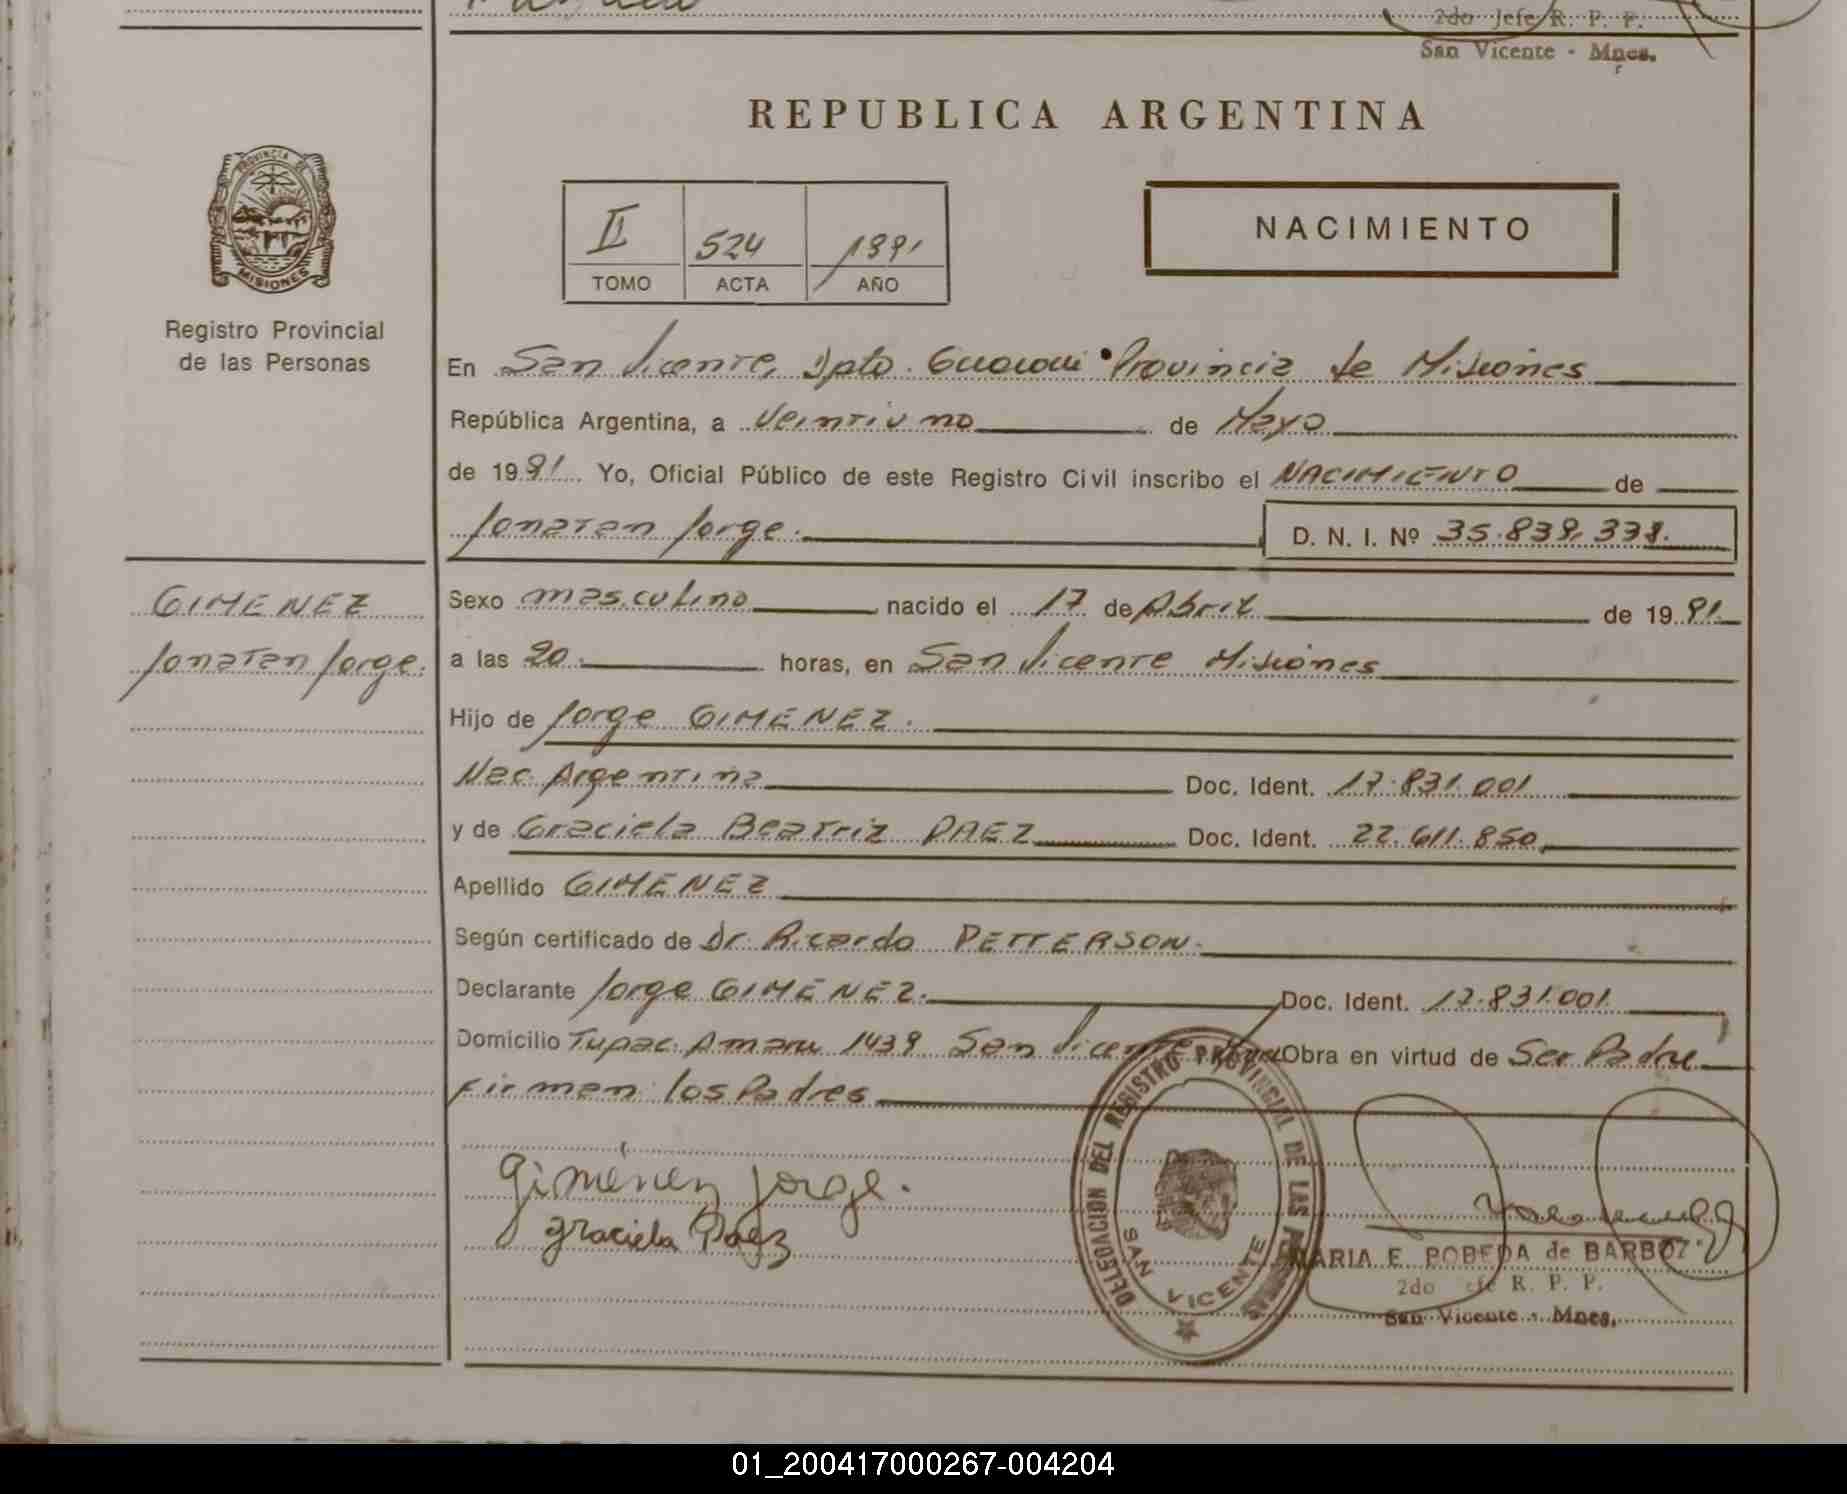 2do Jefe R. P. P.
San Vicente - Mnes.
REPUBLICA ARGENTINA
PROVINCIA DE
MISIONES
Registro Provincial
de las Personas
II 524 1991
TOMO ACTA AÑO
NACIMIENTO
En San Vicente, Dpto. Guarani Provincia de Misiones
República Argentina, a Veintiuno de Mayo
de 1991 Yo, Oficial Público de este Registro Civil inscribo el NACIMIENTO de
Jonatan Jorge. D. N. I. Nº
GIMENEZ
Jonatan Jorge.
Sexo masculino nacido el 17 de Abril de 1991
a las 20 horas, en San Vicente Misiones
Hijo de Jorge GIMENEZ.
Nac. Argentina Doc. Ident. 17.831.001
y de Graciela Beatriz PAEZ Doc. Ident. 22.611.850
Apellido GIMENEZ
Según certificado de Dr. Ricardo PETTERSON.
Declarante Jorge GIMENEZ. Doc. Ident. 17.831.001
Domicilio Tupac Amaru 1439 San Vicente Obra en virtud de Ser Padre
Firman los Padres
Giménez Jorge.
Graciela Paez
DELEGACION DEL REGISTRO PROVINCIAL DE LAS PERSONAS
SAN VICENTE
MARIA E. POBEDA de BARBOZA
2do Jefe R. P. P.
San Vicente - Mnes.
01_200417000267-004204